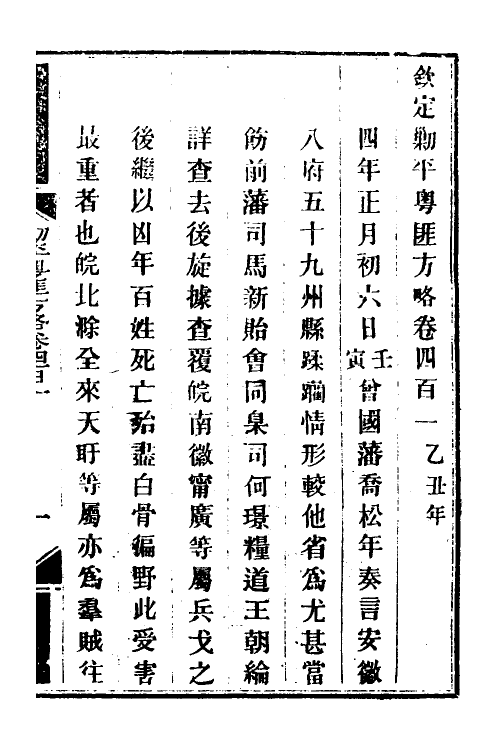 欽定勦平粵匪方略卷四百一乙丑年
四年正月初六日壬寅曾國藩喬松年奏言安徽
八府五十九州縣蹂躪情形較他省為尤甚當
飭前藩司馬新貽會同臬司何璟糧道王朝綸
詳查去後旋據查覆皖南徽甯廣等屬兵戈之
後繼以凶年百姓死亡殆盡白骨徧野此受害
最重者也皖北滁全來天盱等屬亦為羣賊往